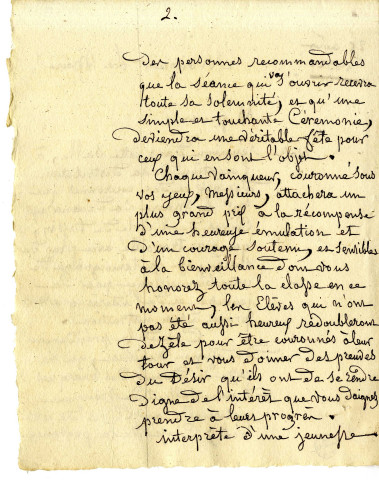 2.
des personnes recommandables
que la séance qui va s'ouvrir recevra
toute sa solemnité, et qu'une
simple et touchante Cérémonie,
deviendra une véritable fête pour
ceux qui en sont l'objet.
Chaque vainqueur, couronné sous
vos yeux, Messieurs, attachera un
plus grand prix à la récompense
d'une heureuse émulation et
d'un courage soutenu, et sensibles
à la bienveillance dont vous
honorez toute la classe en ce
moment, les Elèves qui n'ont
pas été aussi heureux redoubleront
de zèle pour être couronnés à leur
tour et vous donner des preuves
du Désir qu'ils ont de se rendre
digne de l'intérêt que vous daignez
prendre à leurs progrès.
interprète d'une jeunesse